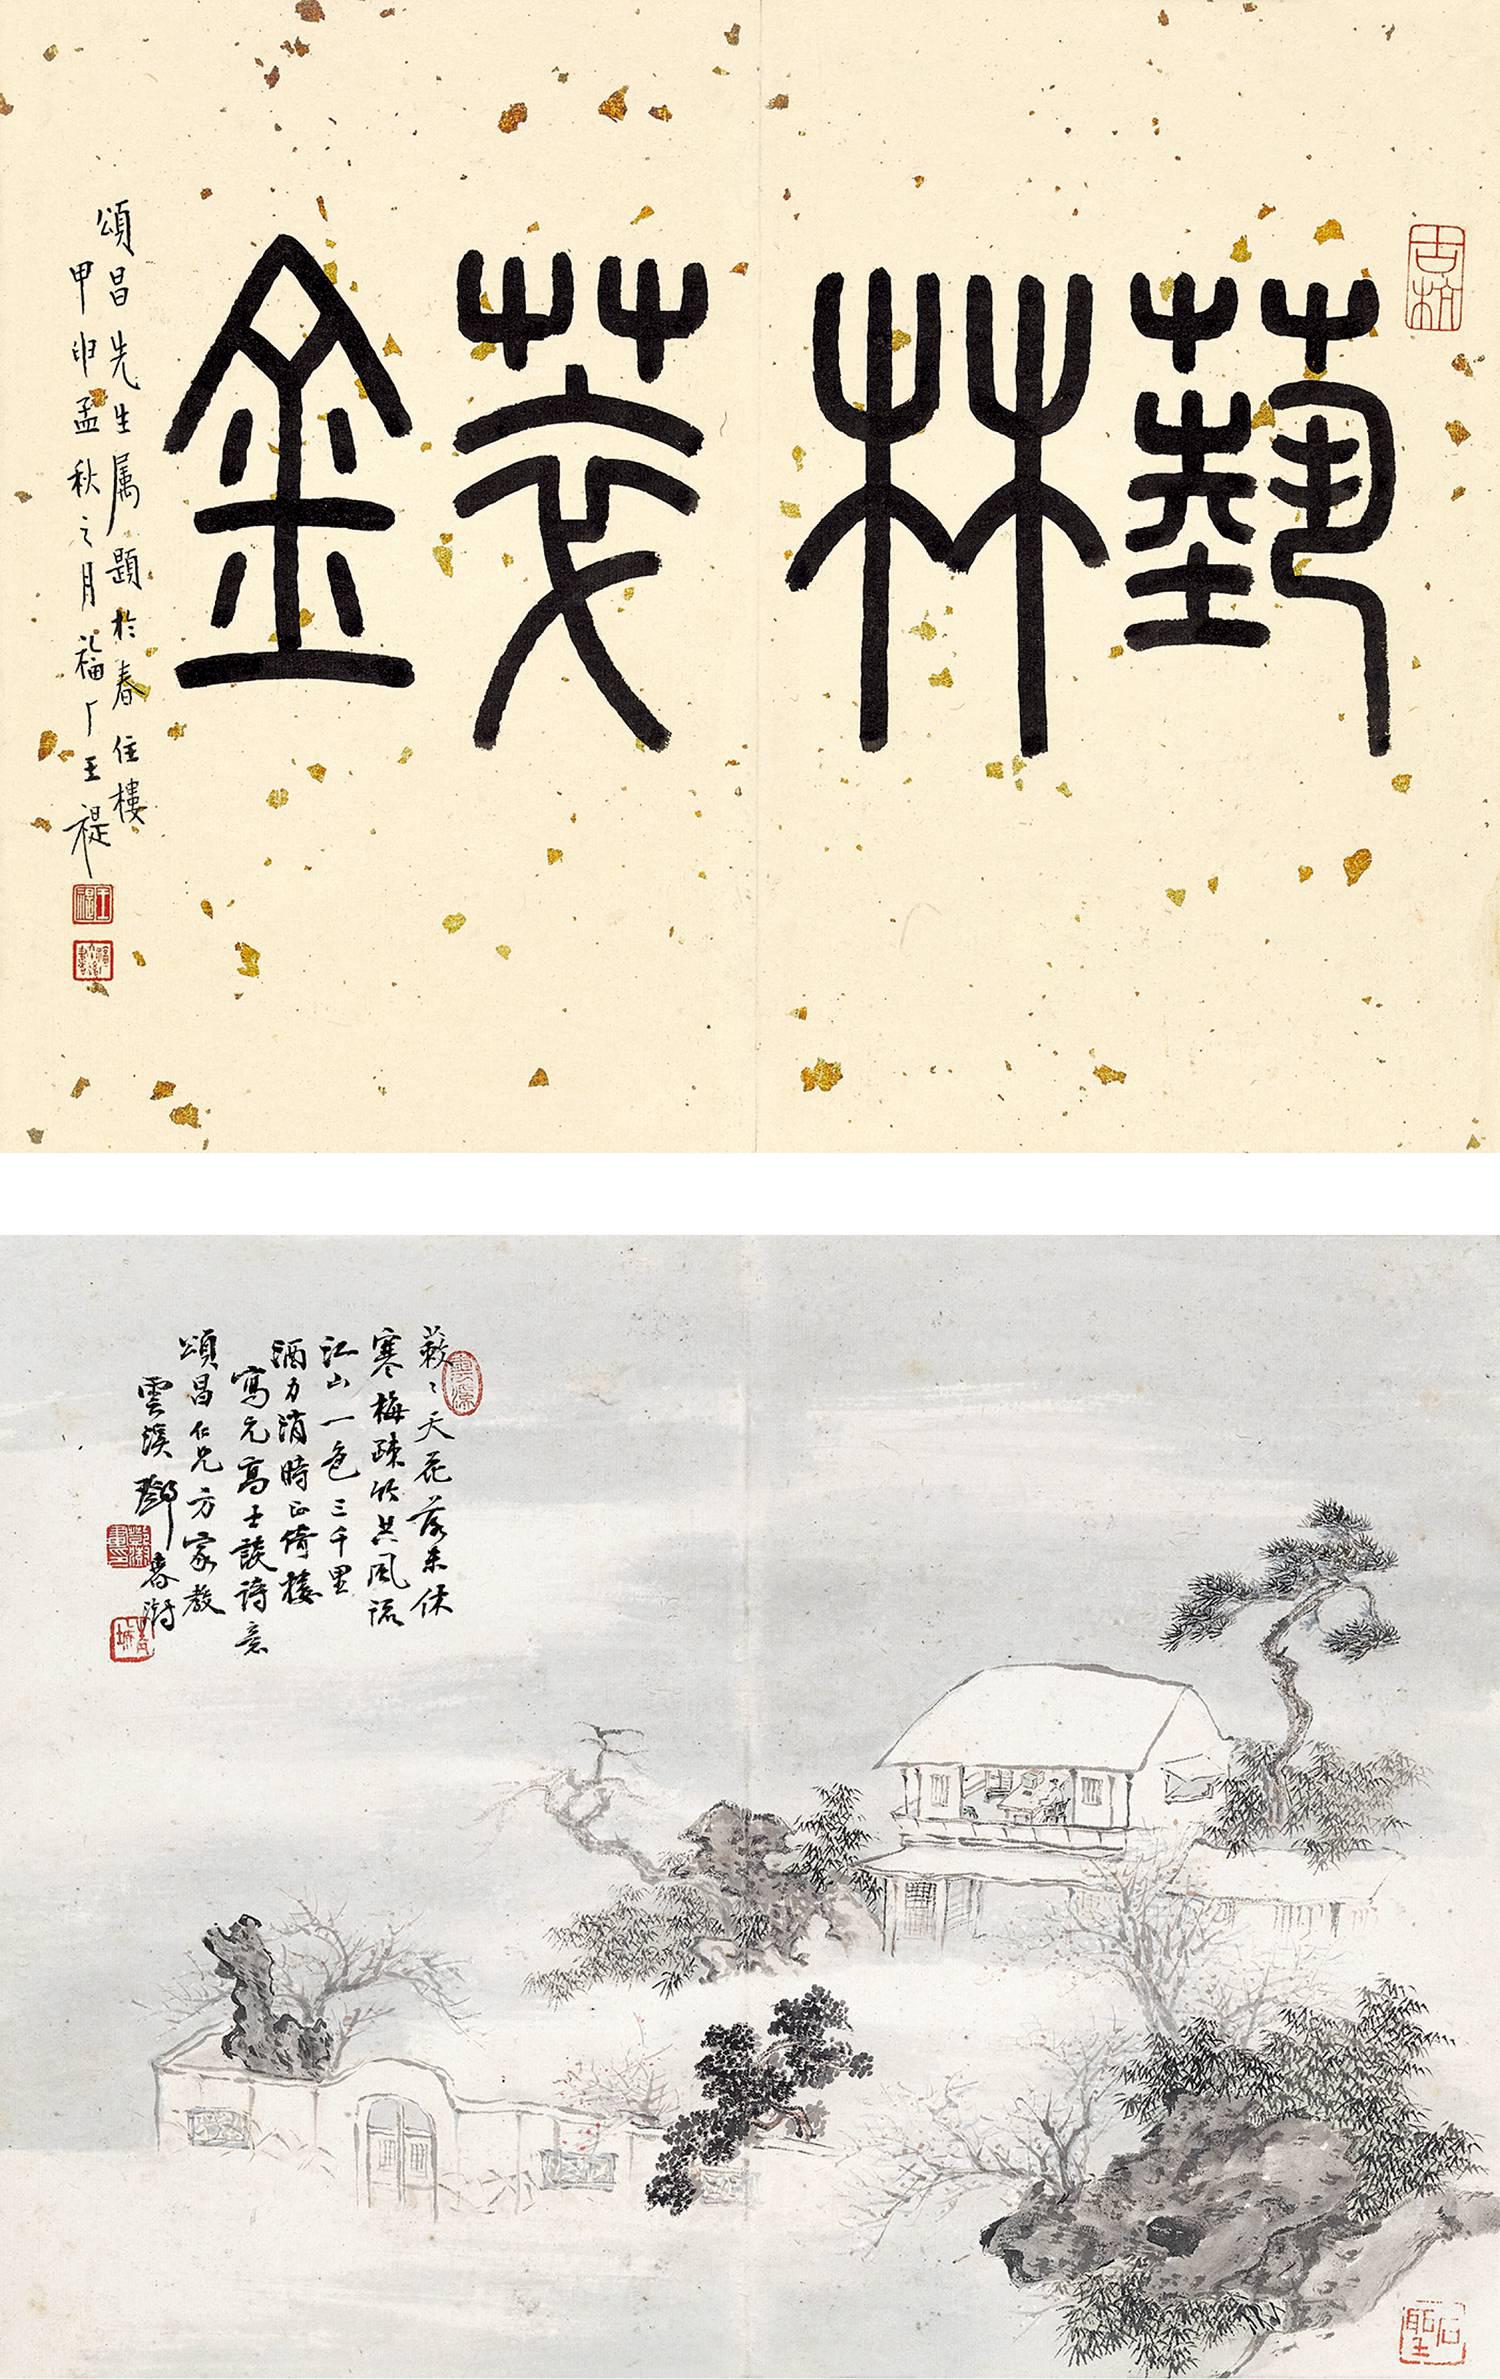 古杭
藝林萃金
頌昌先生属題於春住樓
甲申孟秋之月福厂王禔
王禔
蔌〻天花落未休
寒梅疎竹共風流
江山一色三千里
酒力消時正倚樓
寫元高士談詩意
頌昌仁兄方家教
雲溪鄧春澍
青城
石聖